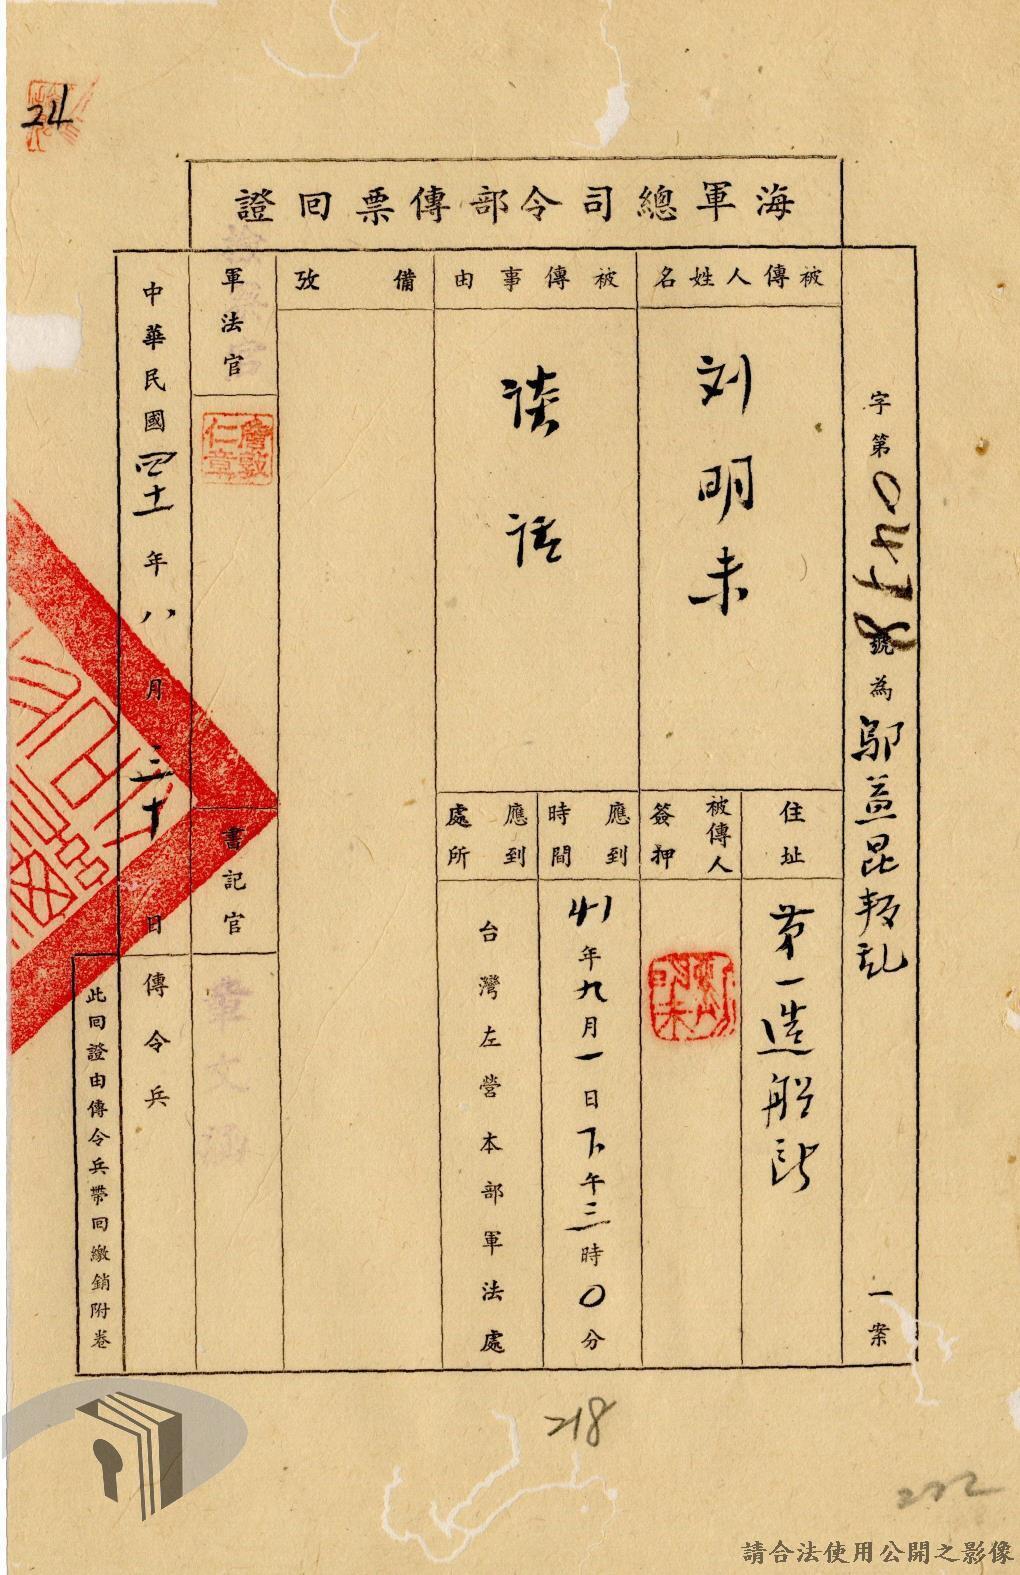 24
海軍總司令部傳票回證
字第0478號為鄔益昆叛乱一案
被傳人姓名
刘明未
住址
第一造船所
被傳人簽押
刘明未
被傳事由
談話
應到時間
41年九月一日下午三時0分
應到處所
台灣左營本部軍法處
備攷
軍法官
書記官
章文
中華民國四十一年八月三十日
傳令兵
此回證由傳令兵帶回繳銷附卷
218
222
請合法使用公開之影像